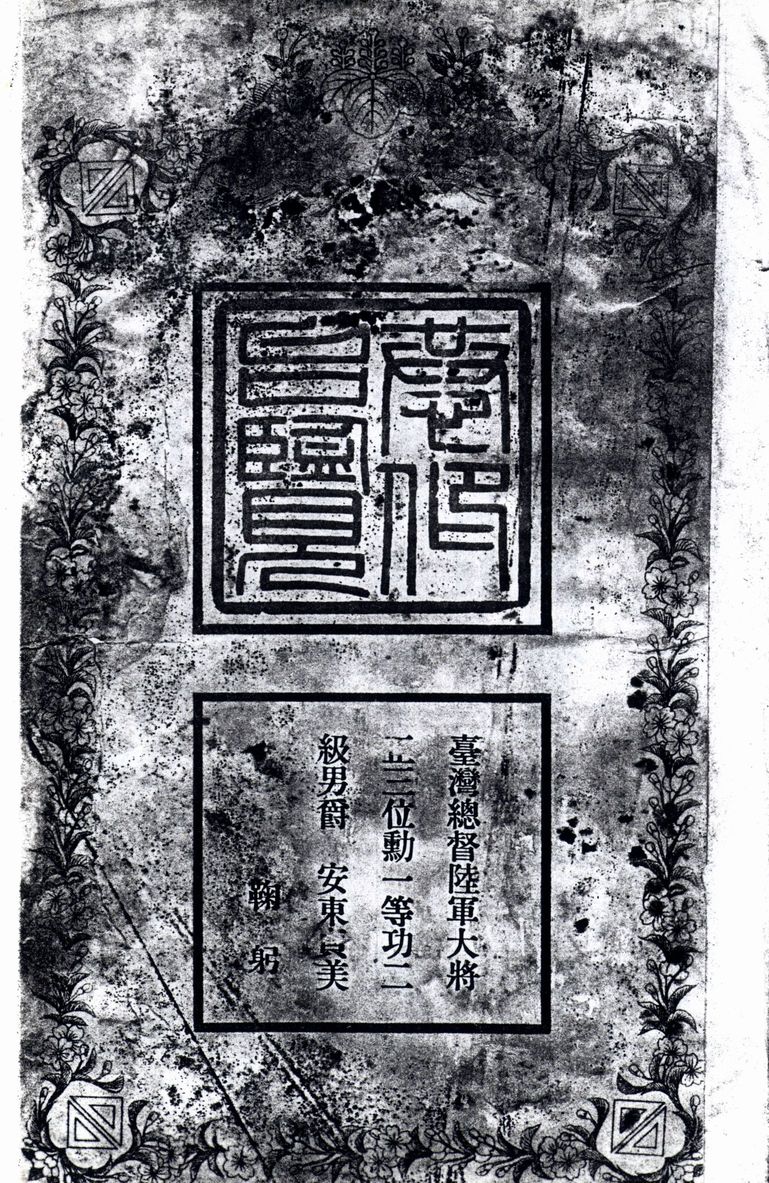 恭仰
台覽
臺灣總督陸軍大將
正三位勳一等功二
級男爵　安東貞美
鞠躬